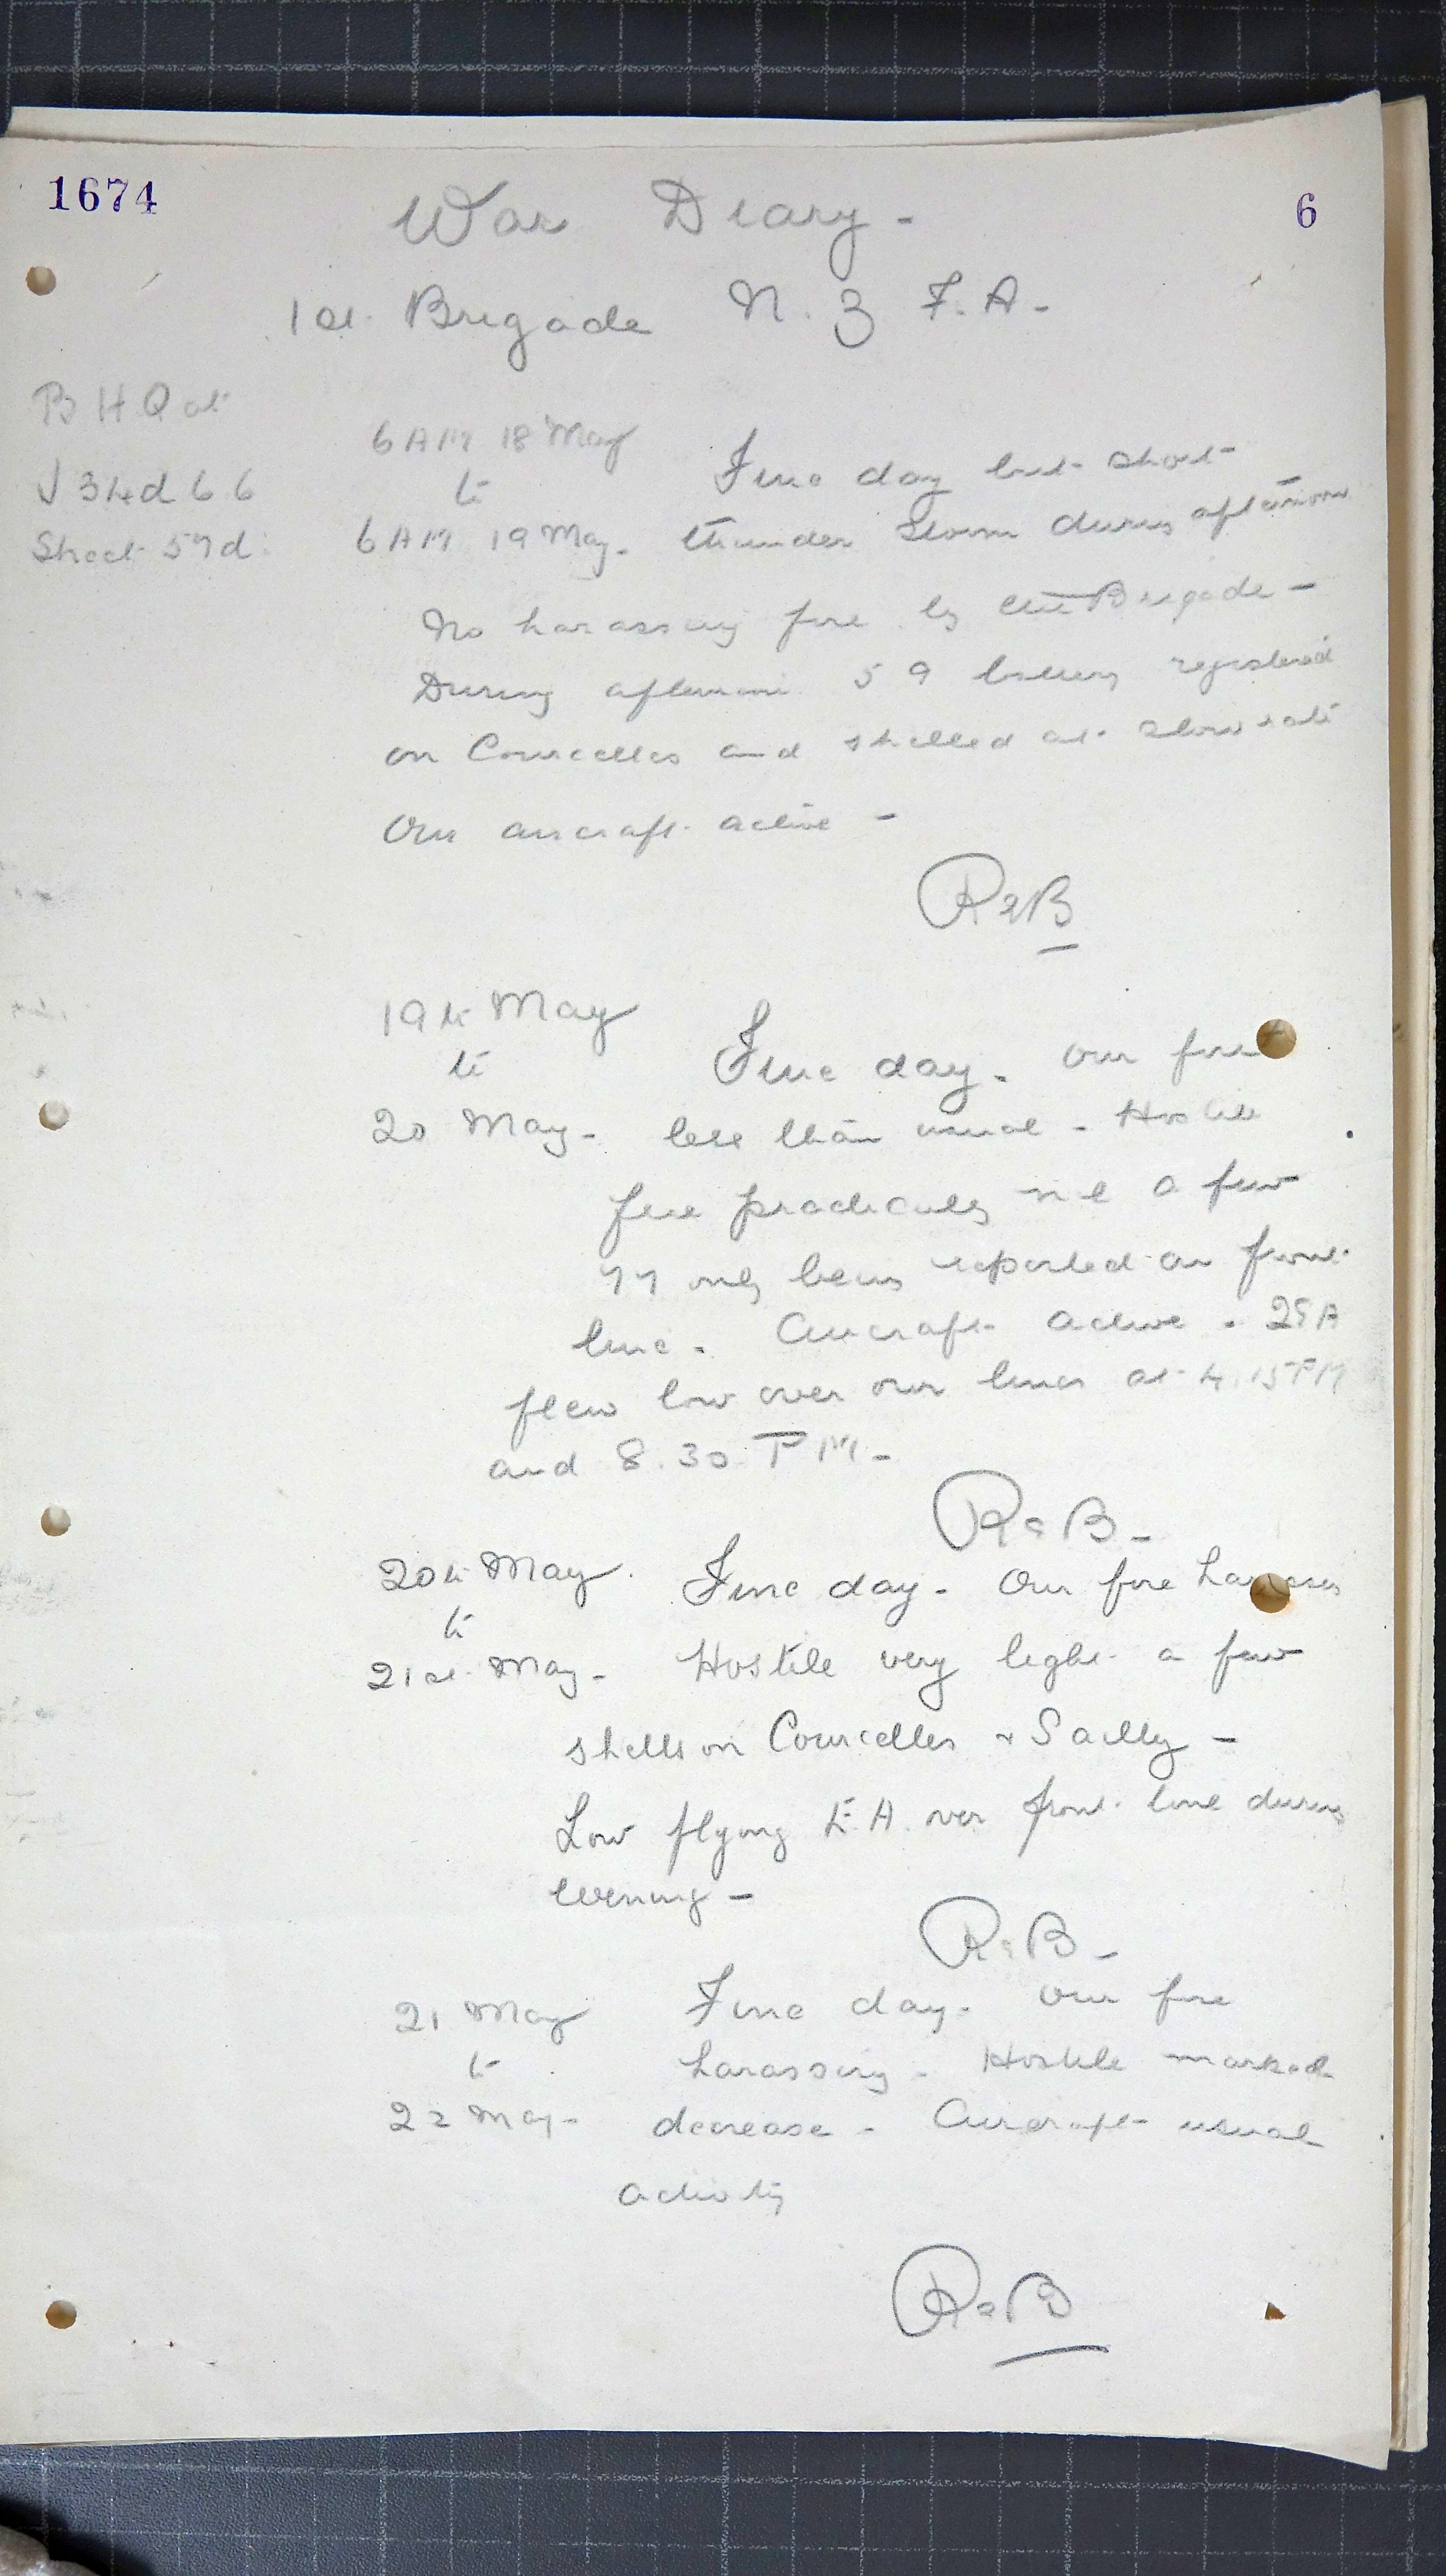 1674
6
War Diary -
1st. Brigade N. Z F. A -
B H Q at
J 34d 6 6
Sheet 57d.
6 AM 18 May
to
6 AM 19 May.
Fine day but short
thunder storm during afternoon
No harassing fire by the Brigade -
During afternoon 5 9 battery registered
on Courcelles and shelled at slow rate
Our aircraft active -
R B
19th May
to
20 May -
Fine day. Our fire
less than usual - Hostile
fire practically nil a few
77 only being reported on front
line. Aircraft active. 2 EA
flew low over our lines at 4.15 PM
and 8.30 PM -
R B -
20th May.
to
21st May -
Fine day. Our fire harasses
Hostile very light a few
shells on Courcelles & Sailly -
Low flying E. A. over front line during
evening -
R B -
21 May
to
22 May -
Fine day. Our fire
harassing. Hostile marked
decrease. Aircraft usual
activity
R B